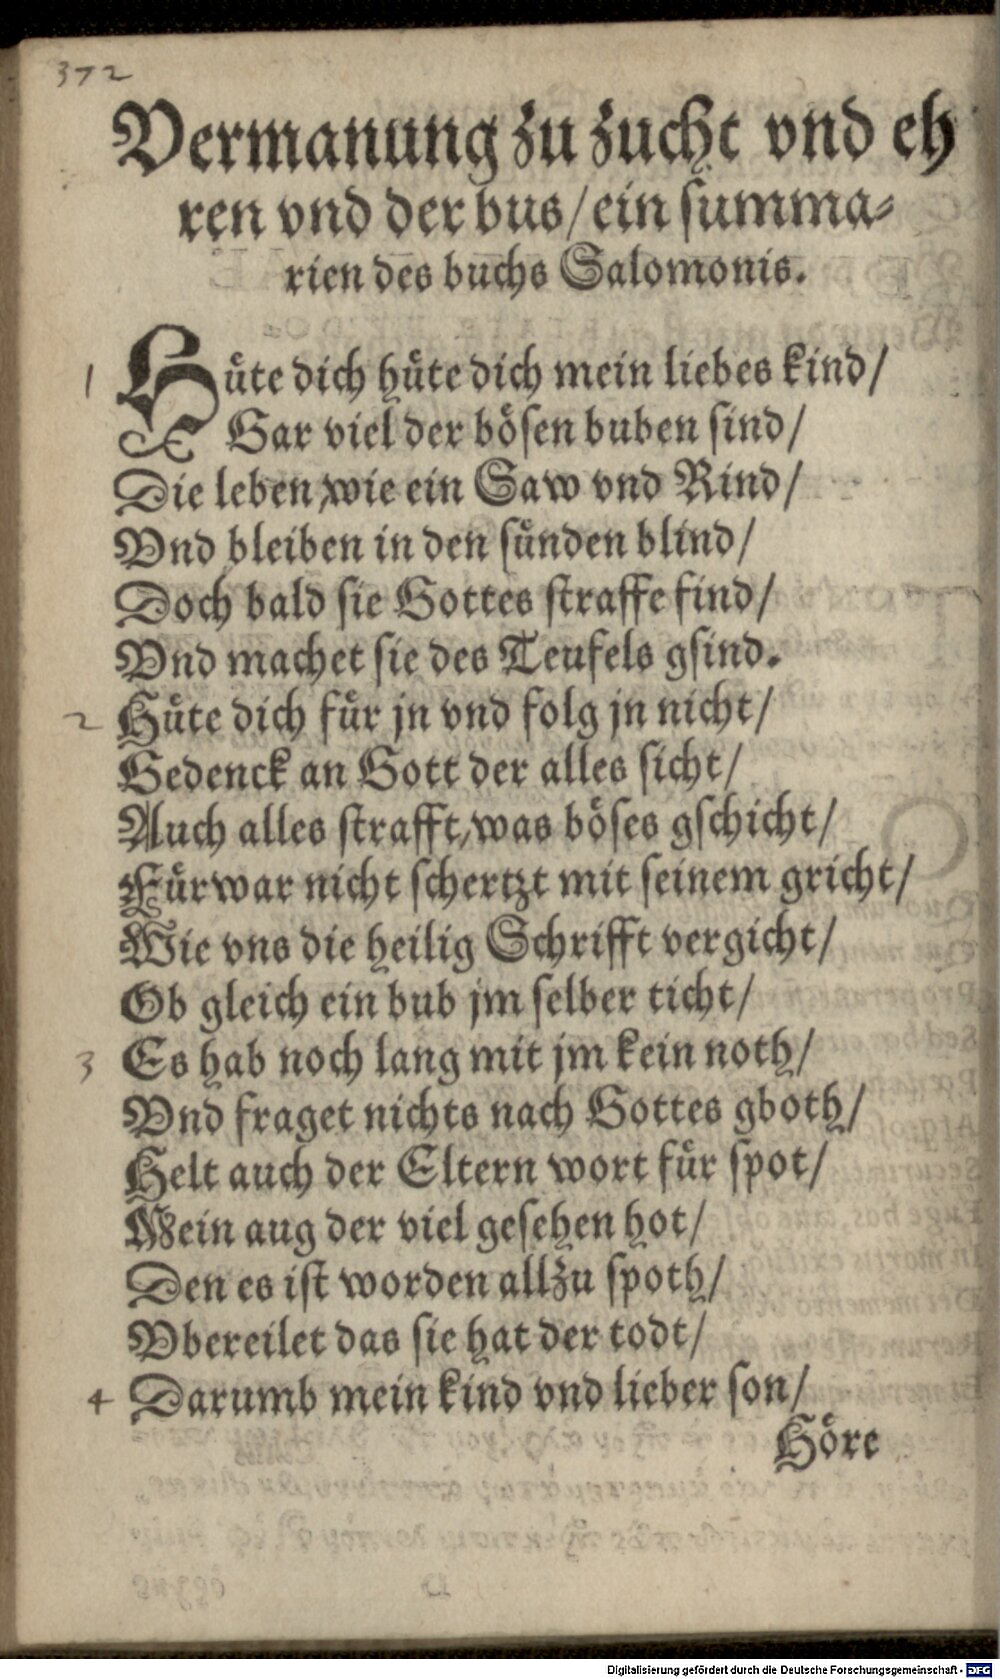 372
Vermanung zu zucht vnd eh
ren vnd der bus/ein summa⸗
rien des buchs Salomonis.
1 Hüte dich hüte dich mein liebes kind/
Gar viel der bösen buben sind/
Die leben, wie ein Saw vnd Rind/
Vnd bleiben in den sünden blind/
Doch bald sie Gottes straffe find/
Vnd machet sie des Teufels gsind.
2 Hüte dich für jn vnd folg jn nicht/
Gedenck an Gott der alles sicht/
Auch alles strafft, was böses gschicht/
Fürwar nicht schertzt mit seinem gricht/
Wie vns die heilig Schrifft vergicht/
Ob gleich ein bub jm selber ticht/
3 Es hab noch lang mit jm kein noth/
Vnd fraget nichts nach Gottes gboth/
Helt auch der Eltern wort für spot/
Mein aug der viel gesehen hot/
Den es ist worden allzu spoth/
Vbereilet das sie hat der todt/
4 Darumb mein kind vnd lieber son/
Höre
Digitalisierung gefördert durch die Deutsche Forschungsgemeinschaft - DFG